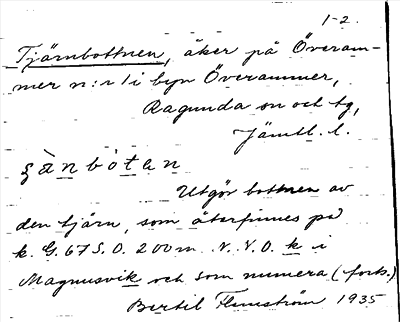 1-2.
Tjärnbottnen, åker på Överam-
mer n:r 1 i byn Överammer,
Ragunda sn och tg,
Jämtl. l.
Utgör bottnen av
den tjärn, som återfinnes på
k. G. 67 S.O. 200 m N.V.O. k i
Magnusvik och som numera (forts.)
Bertil Flemström 1935